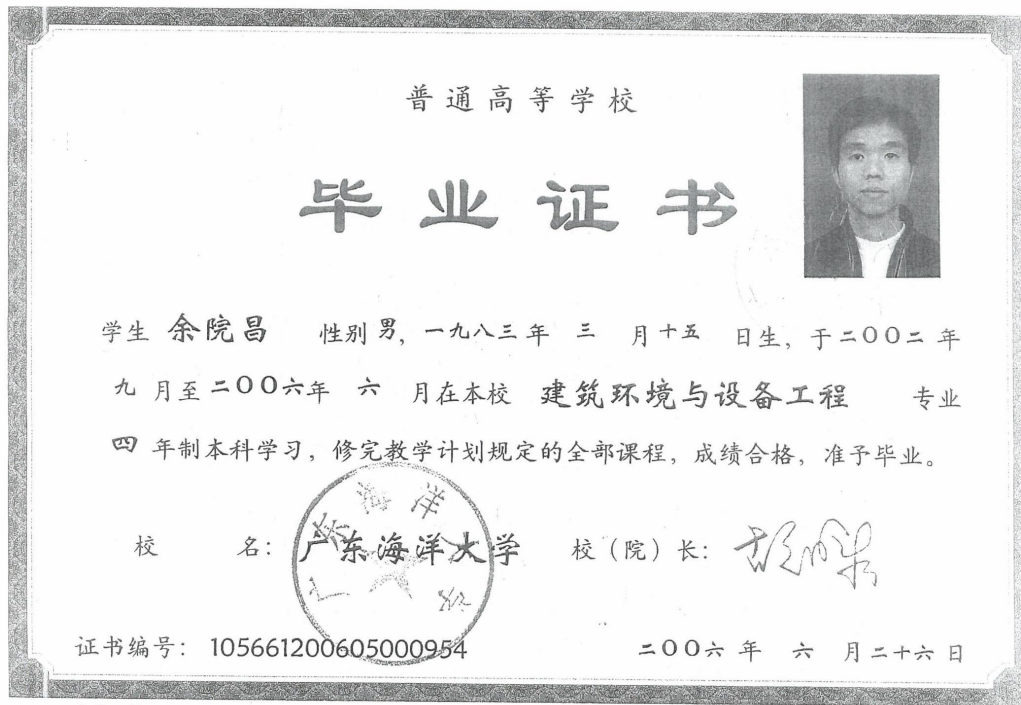 普通高等学校
毕业证书
学生 余院昌 性别 男, 一九八三 年 三 月 十五 日生, 于 二〇〇二 年
九 月至 二〇〇六年 六 月在本校 建筑环境与设备工程 专业
四 年制本科学习, 修完教学计划规定的全部课程, 成绩合格, 准予毕业。
校 名: 广东海洋大学 校（院）长:
广东海洋大学
证书编号: 105661200605000954 二〇〇六 年 六 月 二十六 日